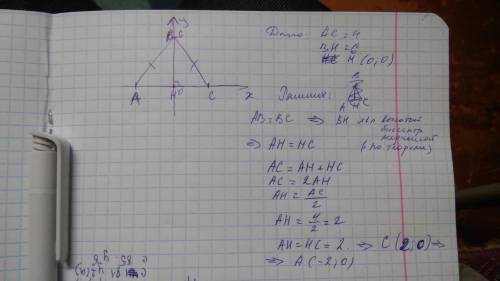 y
B
A
H
O
C
x
Дано: AC = 4
BH = 6
H (0;0)
Решение:
B
A H C
AB = BC ⇒ BH явл. высотой
биссектр
медианой
(по теореме)
⇒ AH = HC
AC = AH + HC
AC = 2AH
AH = AC/2
AH = 4/2 = 2
AH = HC = 2 ⇒ C (2;0) ⇒
⇒ A (-2;0)